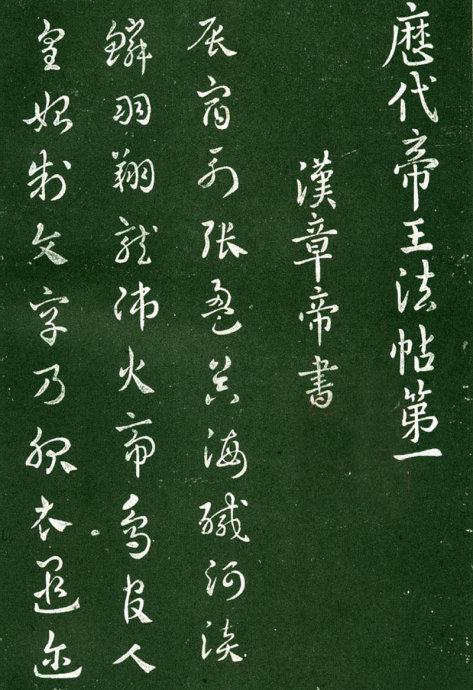 歷代帝王法帖第一
漢章帝書
辰宿列張盈昃海鹹河淡
鱗羽翔龍師火帝鳥官人
皇始制文字乃服衣裳